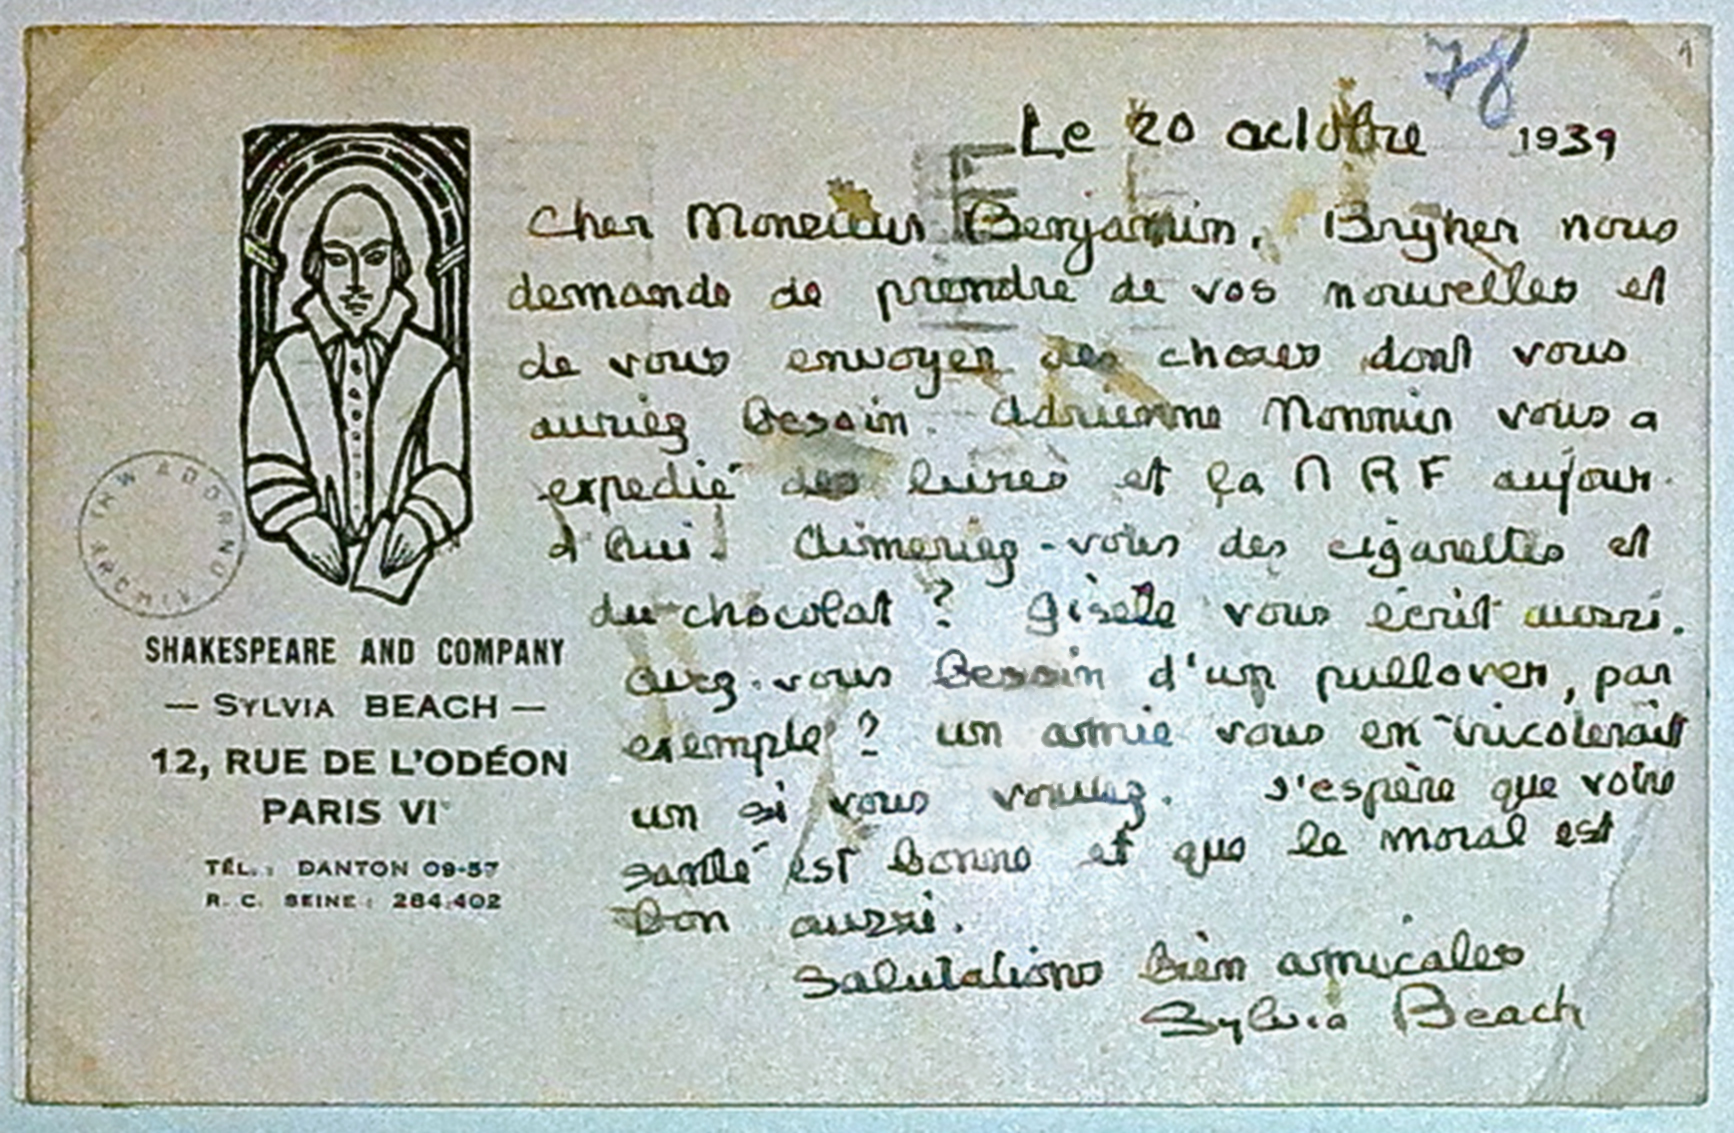 78
1
Le 20 octobre 1939
Cher Monsieur Benjamin, Bryher nous
demande de prendre de vos nouvelles et
de vous envoyer des choses dont vous
auriez besoin. Adrienne Monnier vous a
expedié des livres et la NRF aujour-
d'hui. Aimeriez-vous des cigarettes et
du chocolat ? Gisèle vous écrit aussi.
avez-vous besoin d'un pullover, par
exemple ? un amie vous en tricoterait
un si vous voulez. J'espère que votre
santé est bonne et que le moral est
bon aussi.
Salutations bien amicales
Sylvia Beach
SHAKESPEARE AND COMPANY
— SYLVIA BEACH —
12, RUE DE L'ODÉON
PARIS VIe
TÉL. : DANTON 09-57
R. C. SEINE : 284.402
THW ADORNO ARCHIV